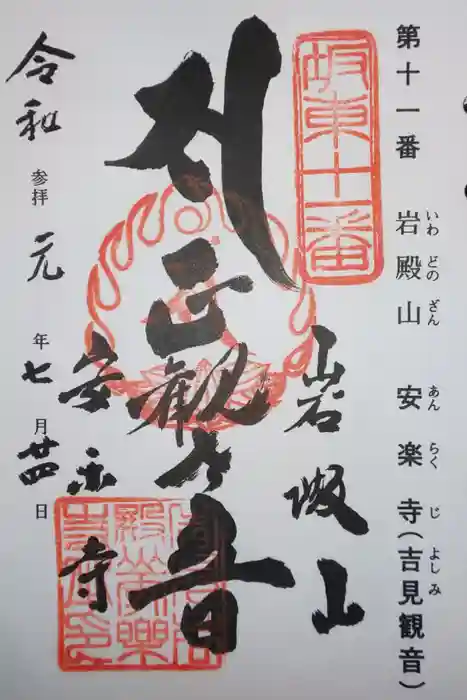 第十一番 岩殿山 安楽寺(吉見観音)
いわ どの ざん あん らく じ よしみ
坂東十一番
岩殿山
正観世音
安楽寺
令和参拝元年七月廿四日